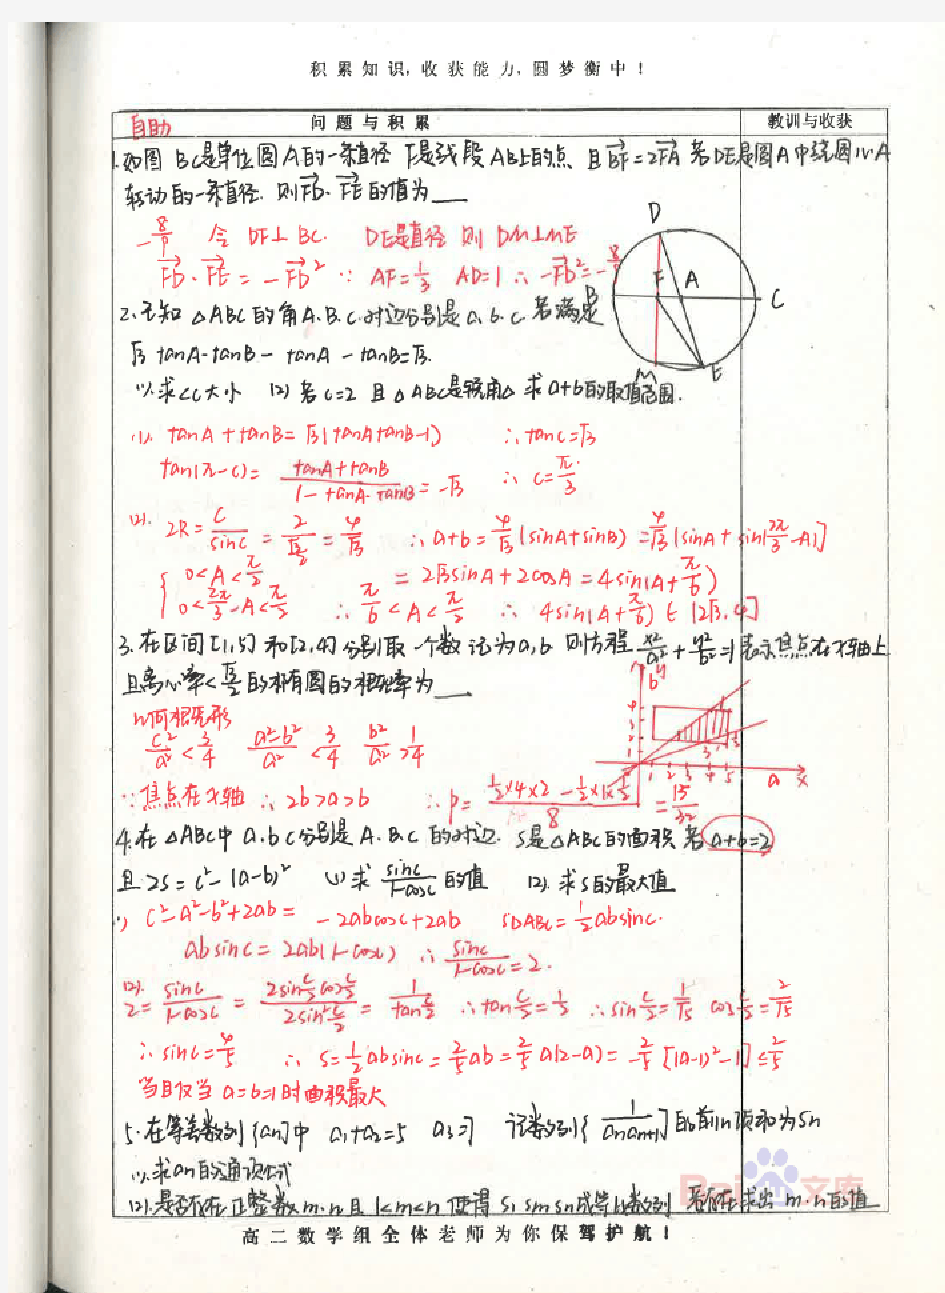 积累知识,收获能力,圆梦衡中!
自助 问题与积累 教训与收获
1.如图 BC是单位圆A的一条直径 F是线段AB上的点 且BF=2FA 若DE是圆A中绕圆心A
转动的一条直径.则FD·FE的值为___
-8/9 令DF⊥BC. DE是直径 则DM⊥ME
FD·FE=-FD² ∵AF=1/3 AD=1 ∴-FD²=-8/9
D
F A
B C
M E
2.已知△ABC的角A.B.C.对边分别是a.b.c.若满足
√3tanA·tanB-tanA-tanB=√3.
(1).求∠C大小 (2)若c=2 且△ABC是锐角△ 求a+b的取值范围.
(1). tanA+tanB=√3(tanAtanB-1) ∴tanC=√3
tan(π-C)=(tanA+tanB)/(1-tanA·tanB)=-√3 ∴C=π/3
(2). 2R=c/sinC=2/(√3/2)=4/√3 ∴a+b=4/√3(sinA+sinB)=4/√3[sinA+sin(2π/3-A)]
{0<A<π/2 =2√3sinA+2cosA=4sin(A+π/6)
0<2π/3-A<π/2 ∴π/6<A<π/2 ∴4sin(A+π/6)∈(2√3,4]
3.在区间[1,5]和[2,4]分别取一个数记为a,b 则方程x²/a²+y²/b²=1表示焦点在x轴上
且离心率<√3/2的椭圆的概率为___
几何概型
c²/a²<3/4 (a²-b²)/a²<3/4 b²/a²>1/4
b y
4
3
2
1
1 2 3 4 5 a x
∵焦点在x轴 ∴2b>a>b ∴P=(1/2×4×2-1/2×1×1/2)/8=15/32
4.在△ABC中 a.b.c分别是A.B.C的对边. S是△ABC的面积 若a+b=2
且2S=c²-(a-b)² (1)求sinC/(1-cosC)的值 (2).求S的最大值
(1) c²-a²-b²+2ab=-2abcosC+2ab S△ABC=1/2absinC.
absinC=2ab(1-cosC) ∴sinC/(1-cosC)=2.
(2). 2=sinC/(1-cosC)=(2sinC/2cosC/2)/(2sin²C/2)=1/(tanC/2) ∴tanC/2=1/2 ∴sinC/2=1/√5 cosC/2=2/√5
∴sinC=4/5 ∴S=1/2absinC=2/5ab=2/5a(2-a)=-2/5[(a-1)²-1]≤2/5
当且仅当a=b=1时面积最大
5.在等差数列{an}中 a1+a2=5 a3=7 记数列{1/(anan+1)}的前n项和为Sn
(1).求an的通项公式
(2).是否存在正整数m.n且1<m<n使得S1 Sm Sn成等比数列 若存在求出m.n的值
Bai 文库
高二数学组全体老师为你保驾护航!